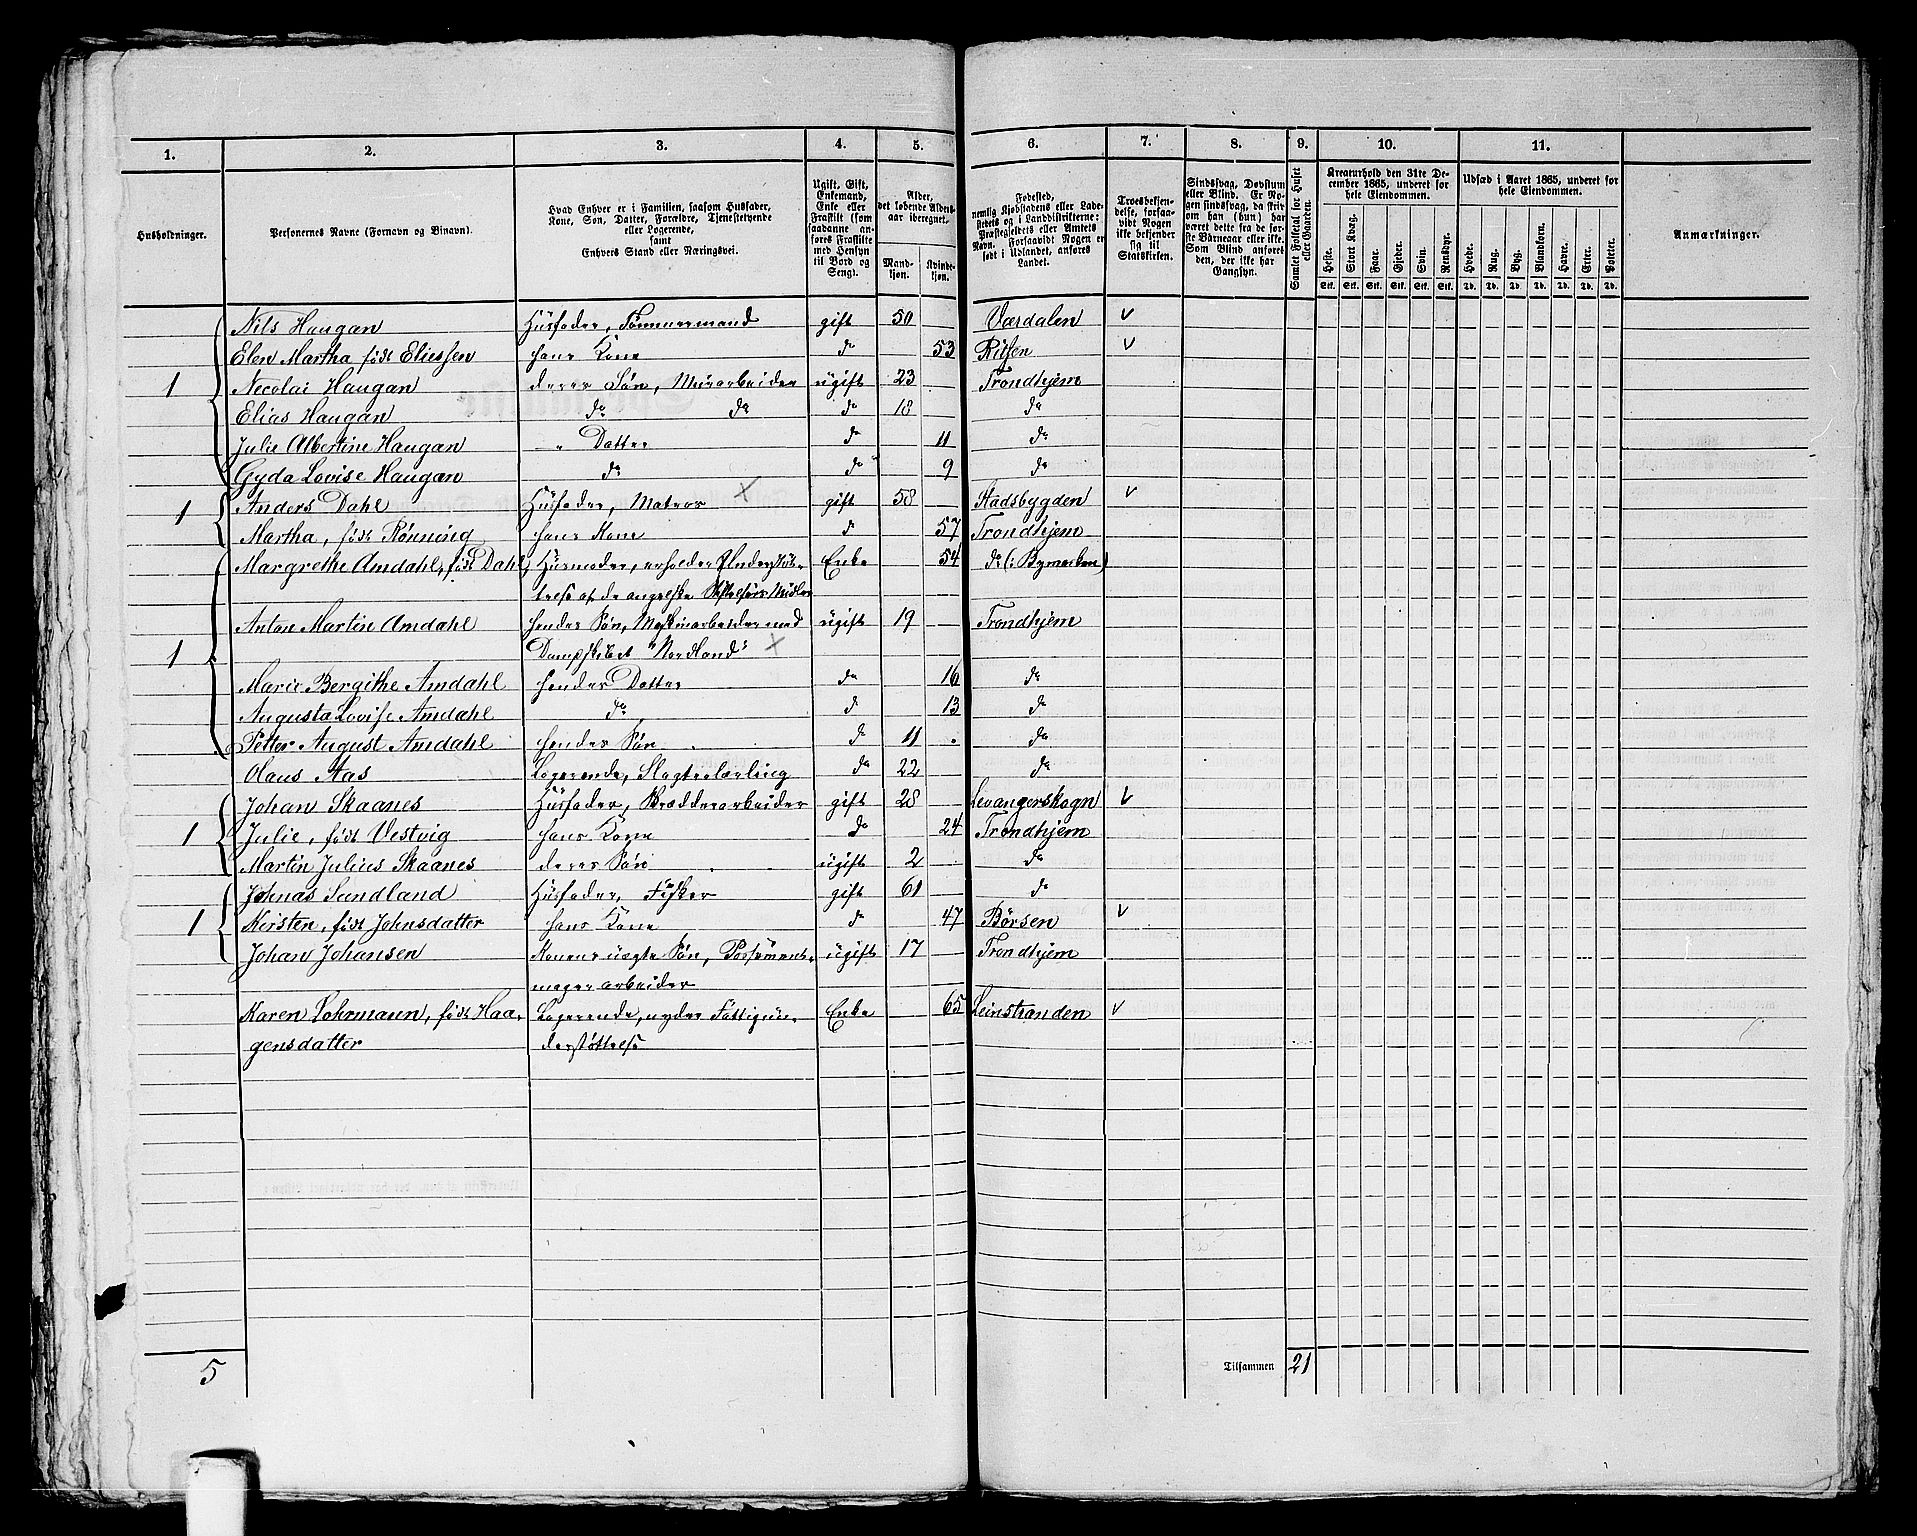 1. 2. 3. 4. 5. 6. 7. 8. 9. 10. 11.
Husholdninger.
Personernes Navne (Fornavn og Tilnavn).
Hvad Enhver er i Familien, saasom Husfader,
Kone, Søn, Datter, Forældre, Tjenestetyende
eller Logerende,
samt
Enhvers Stand eller Næringsvei.
Ugift, Gift,
Enkemand,
Enke eller
Fraskilt (som
saadanne an-
føres Fraskilte
med Hensyn
til Bord og
Seng).
Alder,
det løbende Alders-
aar iberegnet.
Mand-
kjøn.
Kvinde-
kjøn.
Fødested,
nemlig Kjøbstadens eller Lade-
stedets og i Landdistrikterne:
Præstegjeldets eller Amtets
Navn. Forsaavidt Nogen er
født i Udlandet, anføres
Landet.
Troesbekjen-
delse, forsaa-
vidt Nogen
ikke bekjender
sig til
Statskirken.
Sindssvag, Døvstum
eller Blind. Er No-
gen sindssvag, da skri-
ves om han (hun) har
været dette fra de før-
ste Barneaar eller ikke.
Som Blind anføres
den, der ikke har
Gangsyn.
Samlet Folketal for Huset
eller Gaarden.
Kreaturhold den 31te De-
cember 1865, underet for
hele Eiendommen.
Heste. Stort Kvæg. Faar. Gjeder. Svin. Rensdyr.
Stk. Stk. Stk. Stk. Stk. Stk.
Udsæd i Aaret 1865, underet for
hele Eiendommen.
Hvede. Rug. Byg. Blandkorn. Havre. Erter. Poteter.
Td. Td. Td. Td. Td. Td. Td.
Anmærkninger.
Nils Haugan Husfader, Tømmermand gift 50 Værdalen v
Elen Martha født Eliessen hans Kone do 53 Ritsen v
1 Necolai Haugan deres Søn, Murarbeider ugift 23 Trondhjem
Elias Haugan do do do 18 do
Julie Albertine Haugan " Datter do 11 do
Gyda Lovise Haugan do do 9 do
1 Anders Dahl Husfader, Matros × gift 58 Stadsbygden v
Martha, født Rønning hans Kone do 57 Trondhjem
Margrethe Amdahl, født Dahl, Husmoder, erholder Understøt- Enke 54 do (: Bymarken)
telse af de angelske Stiftelsers Midler
Anton Martin Amdahl hendes Søn, Maskinarbeider med ugift 19 Trondhjem
1 Dampskibet "Nordland" ×
Marie Bergithe Amdahl hendes Datter do 16 do
Augusta Lovise Amdahl do do 13 do
Petter August Amdahl hendes Søn do 11 do
Olaus Aas Logerende, Slagterlærling do 22 do
Johan Skaanes Husfader, Bræddearbeider gift 28 Levangerskogn v
1 Julie, født Vestvig hans Kone do 24 Trondhjem
Martin Julius Skaanes deres Søn ugift 2 do
Johnas Sundland Husfader, Fisker gift 61 do
1 Kirsten, født Johnsdatter hans Kone do 47 Børsen v
Johan Johansen Konens uægte Søn, ugift 17 Trondhjem
magerarbeider
Karen Lohrmann, født Haa- Logerende, nyder Fattigun- Enke 65 Leinstranden v
gensdatter derstøttelse
5 Tilsammen 21